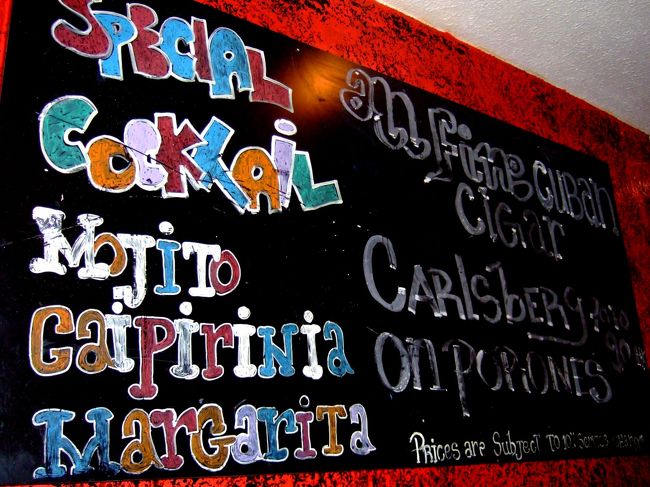 SPECIAL
COCKTAIL
MOJITO
CAIPIRINIA
MARGARITA
All Time CUBAN
CIGAR
CARLSBERG
ON PORIONES 90
PRICES ARE SUBJECT TO 10%